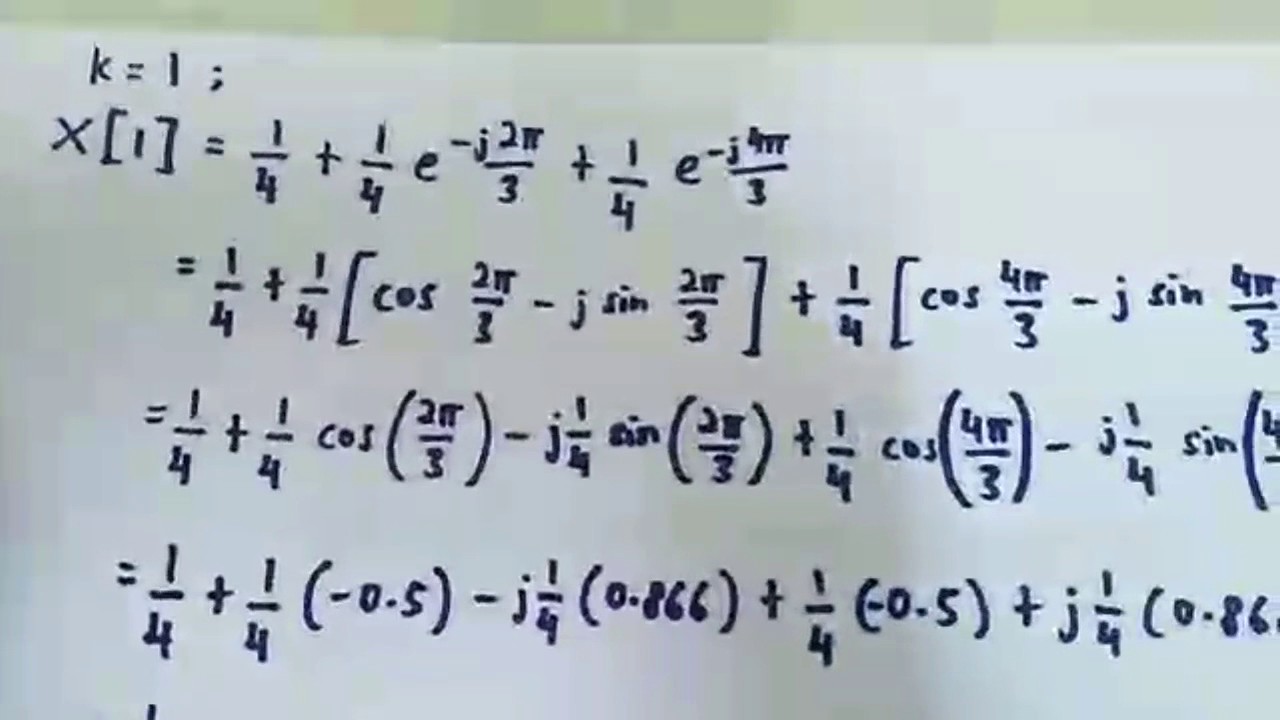 k = 1 ;
X[1] = 1/4 + 1/4 e^{-j2π/3} + 1/4 e^{-j4π/3}
= 1/4 + 1/4 [cos 2π/3 - j sin 2π/3] + 1/4 [cos 4π/3 - j sin 4π/3
= 1/4 + 1/4 cos(2π/3) - j1/4 sin(2π/3) + 1/4 cos(4π/3) - j1/4 sin(4
= 1/4 + 1/4 (-0.5) - j1/4 (0.866) + 1/4 (-0.5) + j1/4 (0.86